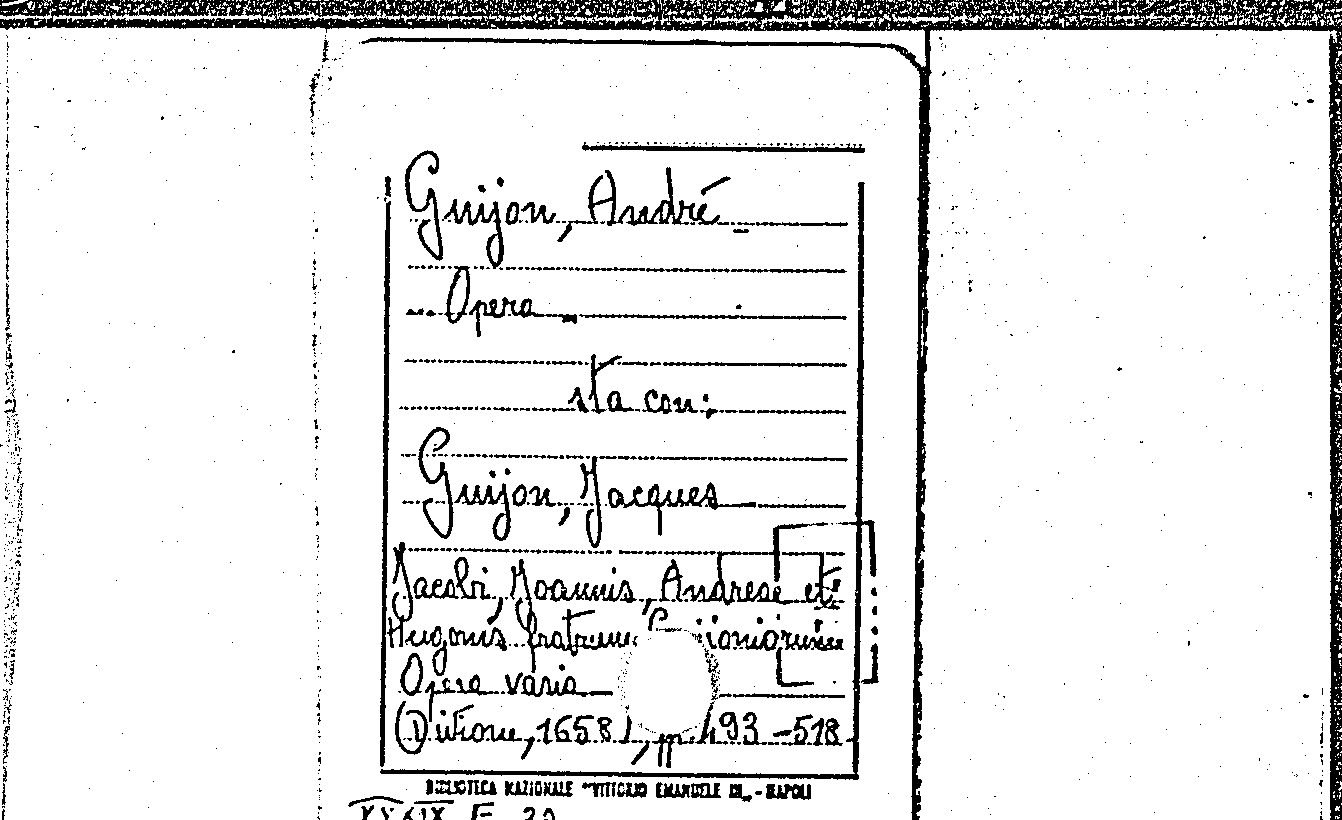 Guijon, André
... Opera
sta con:
Guijon, Jacques
Jacobi, Joannis, Andreae et
Hugonis fratrum
Opera varia
(Divione, 1658), pp. 493-518
BIBLIOTECA NAZIONALE "VITTORIO EMANUELE III" - NAPOLI